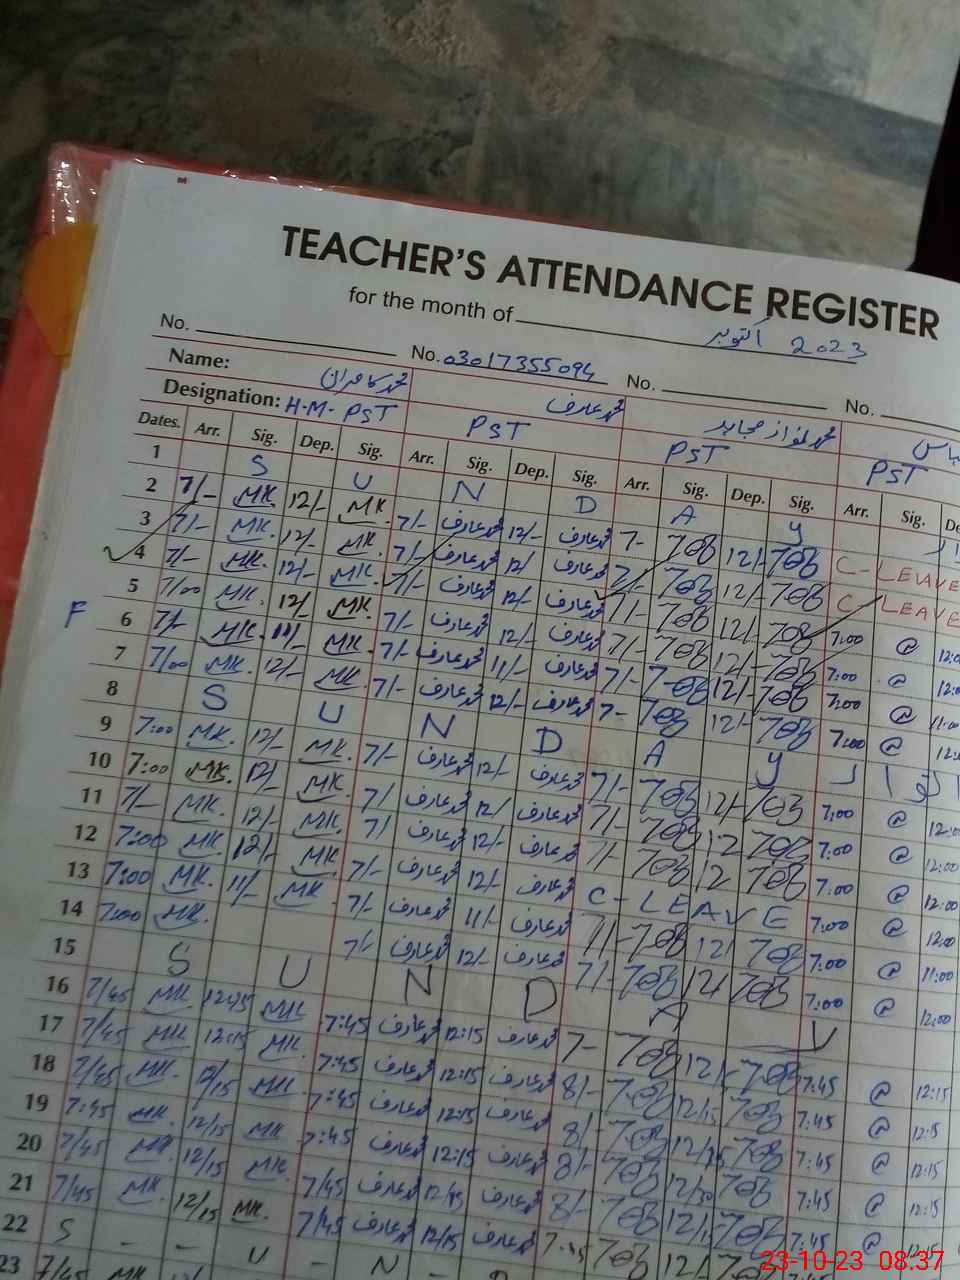 TEACHER'S ATTENDANCE REGISTER
for the month of اکتوبر 2023
No. No. 03017355094 No. No.
Name: محمد کامران محمد عارف محمد نواز مجاہد
Designation: H.M- PST PST PST PST
Dates. Arr. Sig. Dep. Sig. Arr. Sig. Dep. Sig. Arr. Sig. Dep. Sig. Arr. Sig.
1 S U N D A Y
2 7/- MK 12/- MK. 7/- محمد عارف 12/- محمد عارف 7- 12/- C-LEAVE
3 7/- MK. 12/- MK. 7/- محمد عارف 12/ محمد عارف 7/- 12/- C-LEAVE
4 7/- MK. 12/- MK. 7/- محمد عارف 12/- محمد عارف 7/- 12/- 7:00 @
5 7/00 MK. 12/- MK. 7/- محمد عارف 12/- محمد عارف 7/- 12/- 7:00 @
F 6 7/- MK. 11/- MK. 7/- محمد عارف 11/- محمد عارف 7/- 12/- 7:00 @ 11:00
7 7/00 MK. 12/- MK. 7/- محمد عارف 12/- محمد عارف 7- 12/- 7:00 @
8 S U N D A Y اتوار
9 7:00 MK. 12/- MK. 7/- محمد عارف 12/- محمد عارف 7/- 12/- 7:00 @ 12:00
10 7:00 MK. 12/- MK. 7/ محمد عارف 12/ محمد عارف 7/- 12 7:00 @ 12:00
11 7/- MK. 12/- MK. 7/ محمد عارف 12/- محمد عارف 7/- 12 7:00 @ 12:00
12 7:00 MK 12/- MK. 7/- محمد عارف 12/- محمد عارف C-LEAVE 7:00 @ 12:00
13 7:00 MK. 11/- MK. 7/- محمد عارف 11/- محمد عارف 7/- 12/ 7:00 @ 11:00
14 7:00 MK. 7/- محمد عارف 12/- محمد عارف 7/- 12/ 7:00 @ 12:00
15 S U N D A Y
16 7/45 MK 12:45 MK 7:45 محمد عارف 12:15 محمد عارف 7- 12/- 7:45 @ 12:15
17 7/45 MK 12:15 MK. 7:45 محمد عارف 12:15 محمد عارف 8/- 12/15 7:45 @ 12:15
18 7/45 MK. 12/15 MK. 7:45 محمد عارف 12:15 محمد عارف 8/- 7:45 @ 12:15
19 7:45 MK 12/15 MK 7:45 محمد عارف 12:15 محمد عارف 8/- 12/30 7:45 @ 12:15
20 7/45 MK. 12/15 MK. 7/45 محمد عارف محمد عارف 8/- 7:45 @
21 7/45 MK 12/15 MK. 7/45 محمد عارف 12/15 محمد عارف
22 S - - U - N - D
23 7/45 MK
23-10-23 08:37